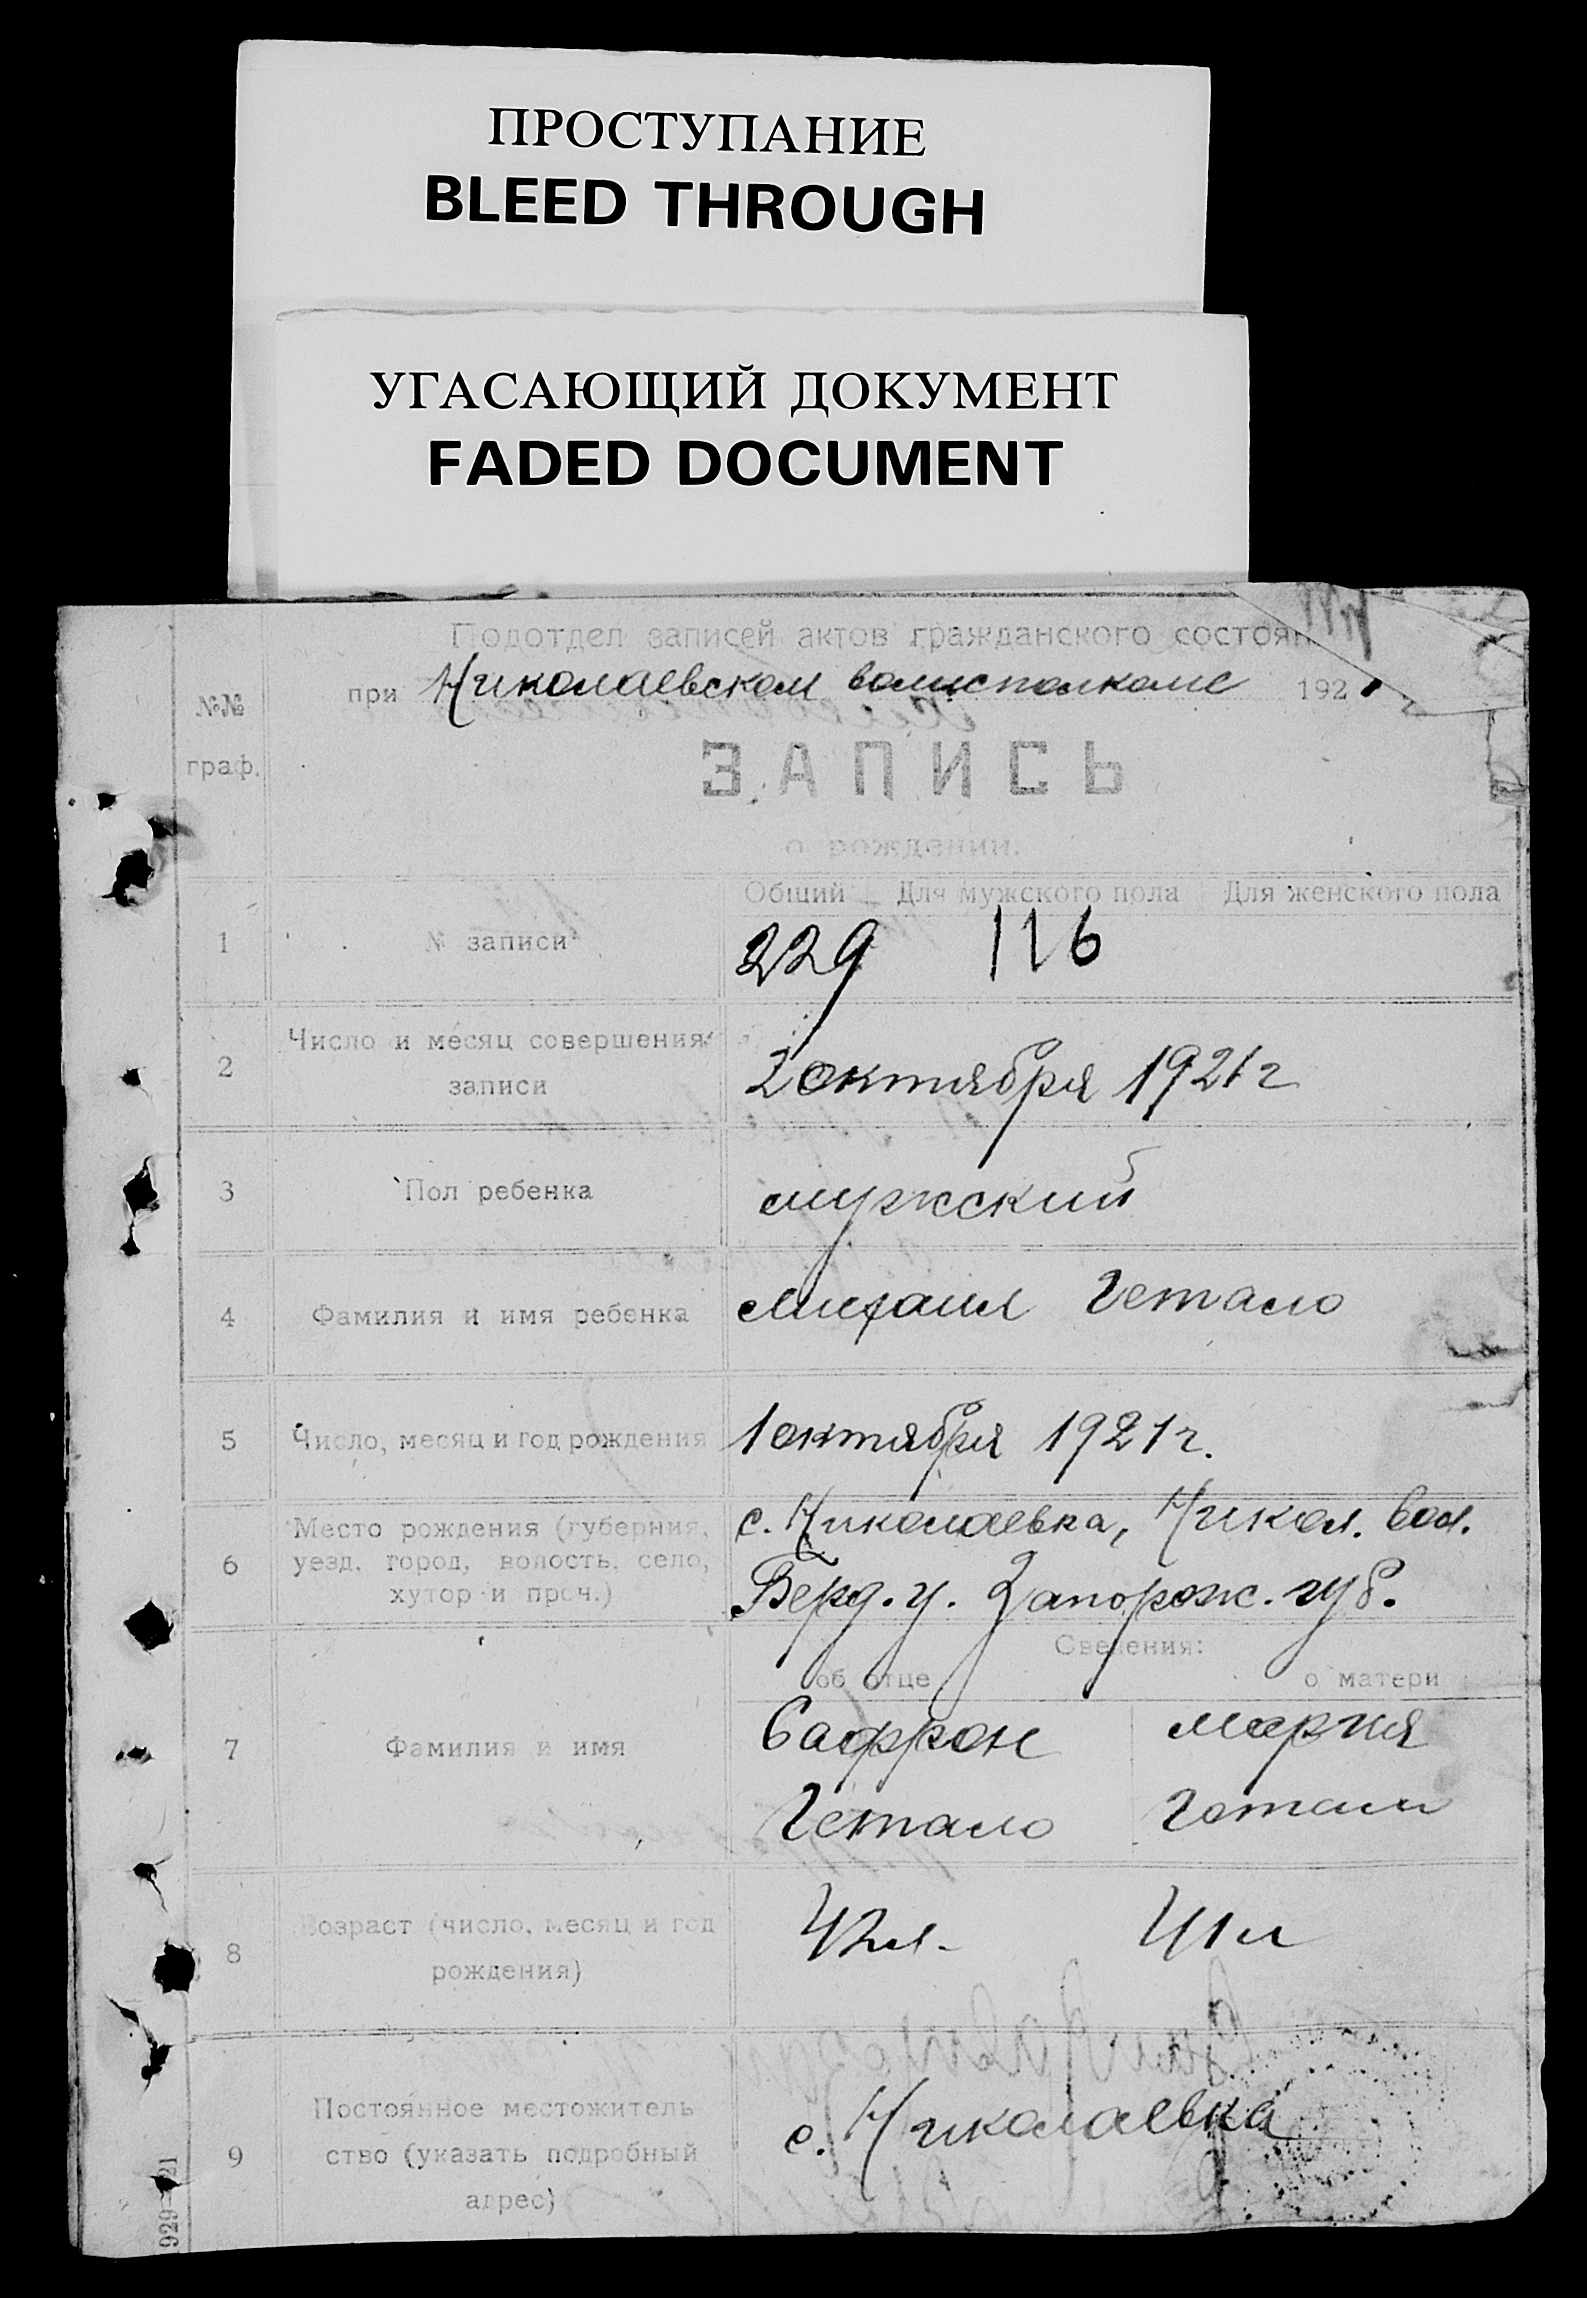 ПРОСТУПАНИЕ
BLEED THROUGH
УГАСАЮЩИЙ ДОКУМЕНТ
FADED DOCUMENT
Подотдел записей актов гражданского состоян
при Николаевском волисполкоме 192
№№ граф.
ЗАПИСЬ
о рождении.
Общий Для мужского пола Для женского пола
1 № записи 229 116
2 Число и месяц совершения
записи
2 октября 1921 г
3 Пол ребенка мужский
4 Фамилия и имя ребенка Михаил Гетало
5 Число, месяц и год рождения 1 октября 1921 г.
6 Место рождения (губерния,
уезд, город, волость, село,
хутор и проч.)
с. Николаевка, Никол. вол.
Берд. у. Запорож. губ.
Сведения:
об отце о матери
7 Фамилия и имя
Сафрон Мария
Гетало Гетало
8 Возраст (число, месяц и год
рождения)
42 л. 41 л
9 Постоянное местожитель
ство (указать подробный
адрес)
с. Николаевка